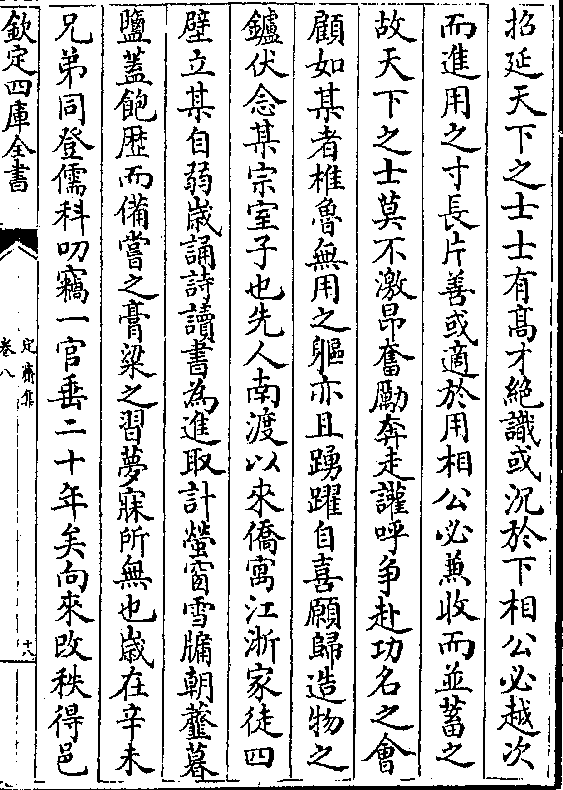 招延天下之士士有髙才絶識或沉於下相公必越次
而進用之寸長片善或適於用相公必兼收而並蓄之
故天下之士莫不激昂奮勵奔走讙呼争赴功名之會
顧如某者椎魯無用之軀亦且踴躍自喜願歸造物之
鑪伏念某宗室子也先人南渡以來僑寓江浙家徒四
壁立某自弱歲誦詩讀書為進取計螢窗雪牖朝虀暮
鹽蓋飽歴而備嘗之膏粱之習夢寐所無也歲在辛未
兄弟同登儒科叨竊一官垂二十年矣向來改秩得邑
欽定四庫全書
定齋集
卷八
十八